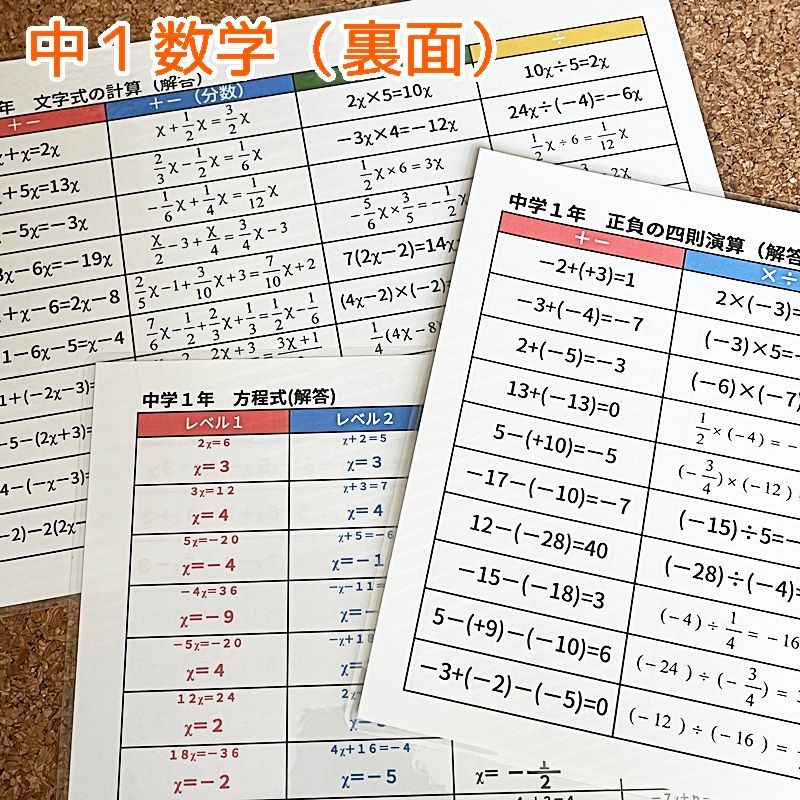 中１数学（裏面）
年　文字式の計算（解答）
＋－
＋－（分数）
÷
χ+1/2χ=3/2χ
2χ×5=10χ
10χ÷5=2χ
χ+χ=2χ
2/3χ-1/2χ=1/6χ
-3χ×4=-12χ
24χ÷(-4)=-6χ
+5χ=13χ
-1/6χ+1/4χ=1/12χ
1/2χ×6=3χ
1/2χ÷6=1/12χ
-5χ=-3χ
χ/2-3+χ/4=3/4χ-3
-5/6χ×3/5=-1/2χ
χ-6χ=-19χ
2/5χ-1+3/10χ+3=7/10χ+2
7(2χ-2)=14χ
+χ-6=2χ-8
7/6χ-1/2+2/3χ+1/3=1/2χ-1/6
(4χ-2)×(-2)=
1-6χ-5=χ-4
2χ+3
3χ+1
1/4(4χ-8)
1+(-2χ-3)=
-5-(2χ+3)=
4-(-χ-3)=
-2)-2(2χ
中学１年　方程式(解答)
レベル１
レベル２
2χ=6
χ+2=5
χ=3
χ=3
3χ=12
χ+3=7
χ=4
χ=4
5χ=-20
χ+5=-6
χ=-4
χ=-1
-4χ=36
-χ-11=
χ=-9
χ=-
-5χ=-20
-χ+18
χ=4
χ=
12χ=24
χ=2
18χ=-36
4χ+16=-4
χ=-2
χ=-5
χ=-1/2
中学１年　正負の四則演算（解答
＋－
×÷
-2+(+3)=1
2×(-3)=
-3+(-4)=-7
(-3)×5=-
2+(-5)=-3
(-6)×(-7)
13+(-13)=0
1/2×(-4)=-
5-(+10)=-5
(-3/4)×(-12)=
-17-(-10)=-7
(-15)÷5=-
12-(-28)=40
(-28)÷(-4)=
-15-(-18)=3
(-4)÷1/4=-16
5-(+9)-(-10)=6
(-24)÷(-3/4)=
-3+(-2)-(-5)=0
(-12)÷(-16)=